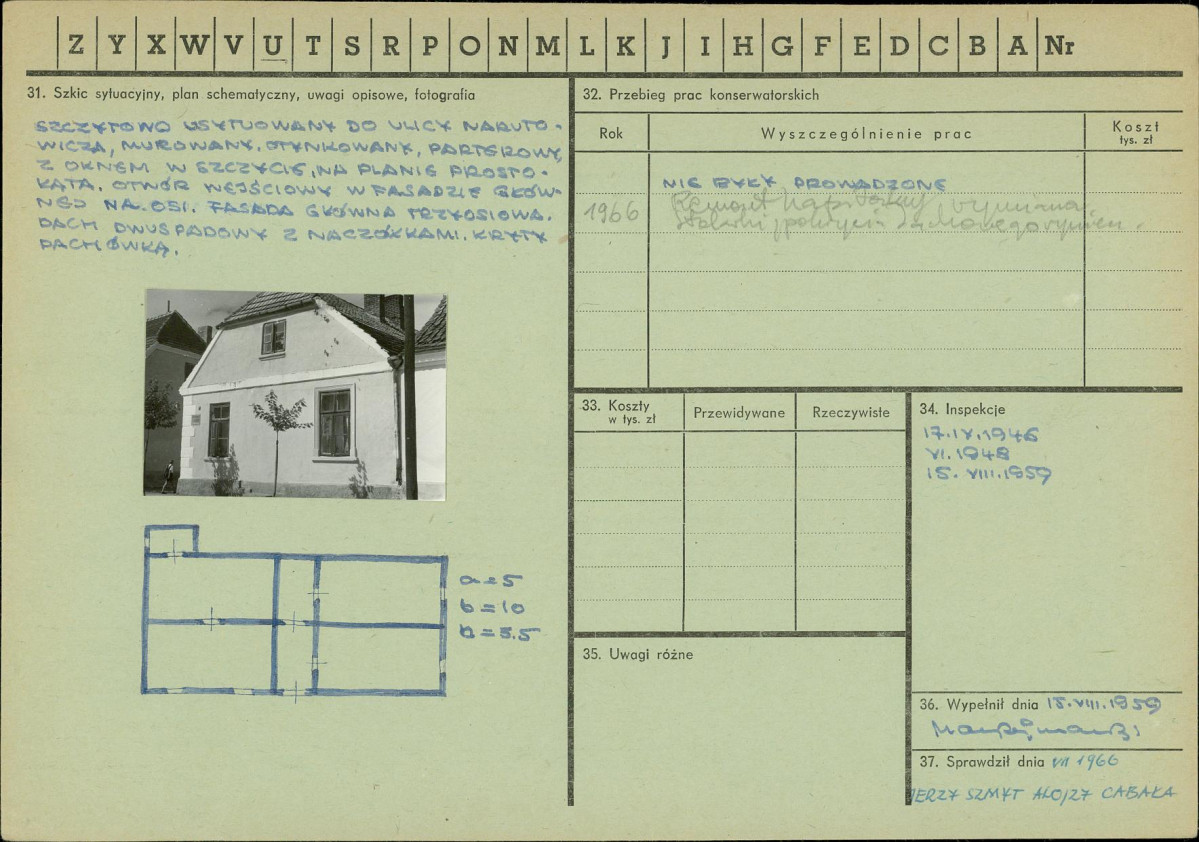 Z Y X W V U T S R P O N M L K J I H G F E D C B A Nr
31. Szkic sytuacyjny, plan schematyczny, uwagi opisowe, fotografia
SZCZYTOWO USYTUOWANY DO ULICY NARUTO-
WICZA, MUROWANY, OTYNKOWANY, PARTEROWY,
Z OKNEM W SZCZYCIE, NA PLANIE PROSTO-
KĄTA. OTWÓR WEJŚCIOWY W FASADZIE GŁÓW-
NEJ NA OSI. FASADA GŁÓWNA TRZYOSIOWA.
DACH DWUSPADOWY Z NACZÓŁKAMI. KRYTY
DACHÓWKĄ.
a = 5
b = 10
32. Przebieg prac konserwatorskich
Rok
Wyszczególnienie prac
Koszt
tys. zł
NIE BYŁY PROWADZONE
1966
Remont wymiana
33. Koszty
w tys. zł
Przewidywane
Rzeczywiste
34. Inspekcje
17.IX.1946
VI.1948
15. VIII.1959
35. Uwagi różne
36. Wypełnił dnia 15.VIII.1959
37. Sprawdził dnia VII 1966
JERZY SZMYT ALOJZY CABAŁA